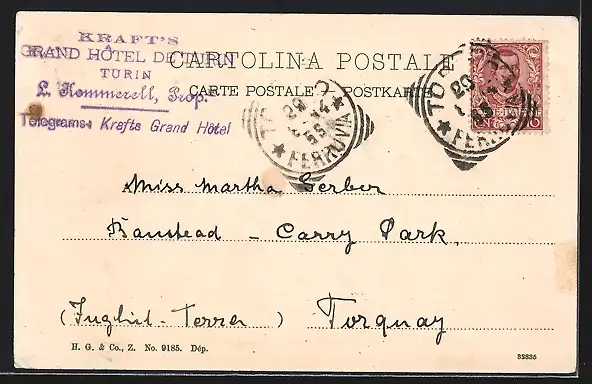 KRAFT'S
GRAND HÔTEL DE TURIN
TURIN
L. Kommerell, Prop.r
Telegrams: Krafts Grand Hôtel
CARTOLINA POSTALE
CARTE POSTALE - POSTKARTE
FERROVIA
FERROVIA
Miss Martha Gerber
Banstead - Carry Park.
(Inghil-Terra) Torquay
H. G. & Co., Z. No. 9185. Dép.
32835